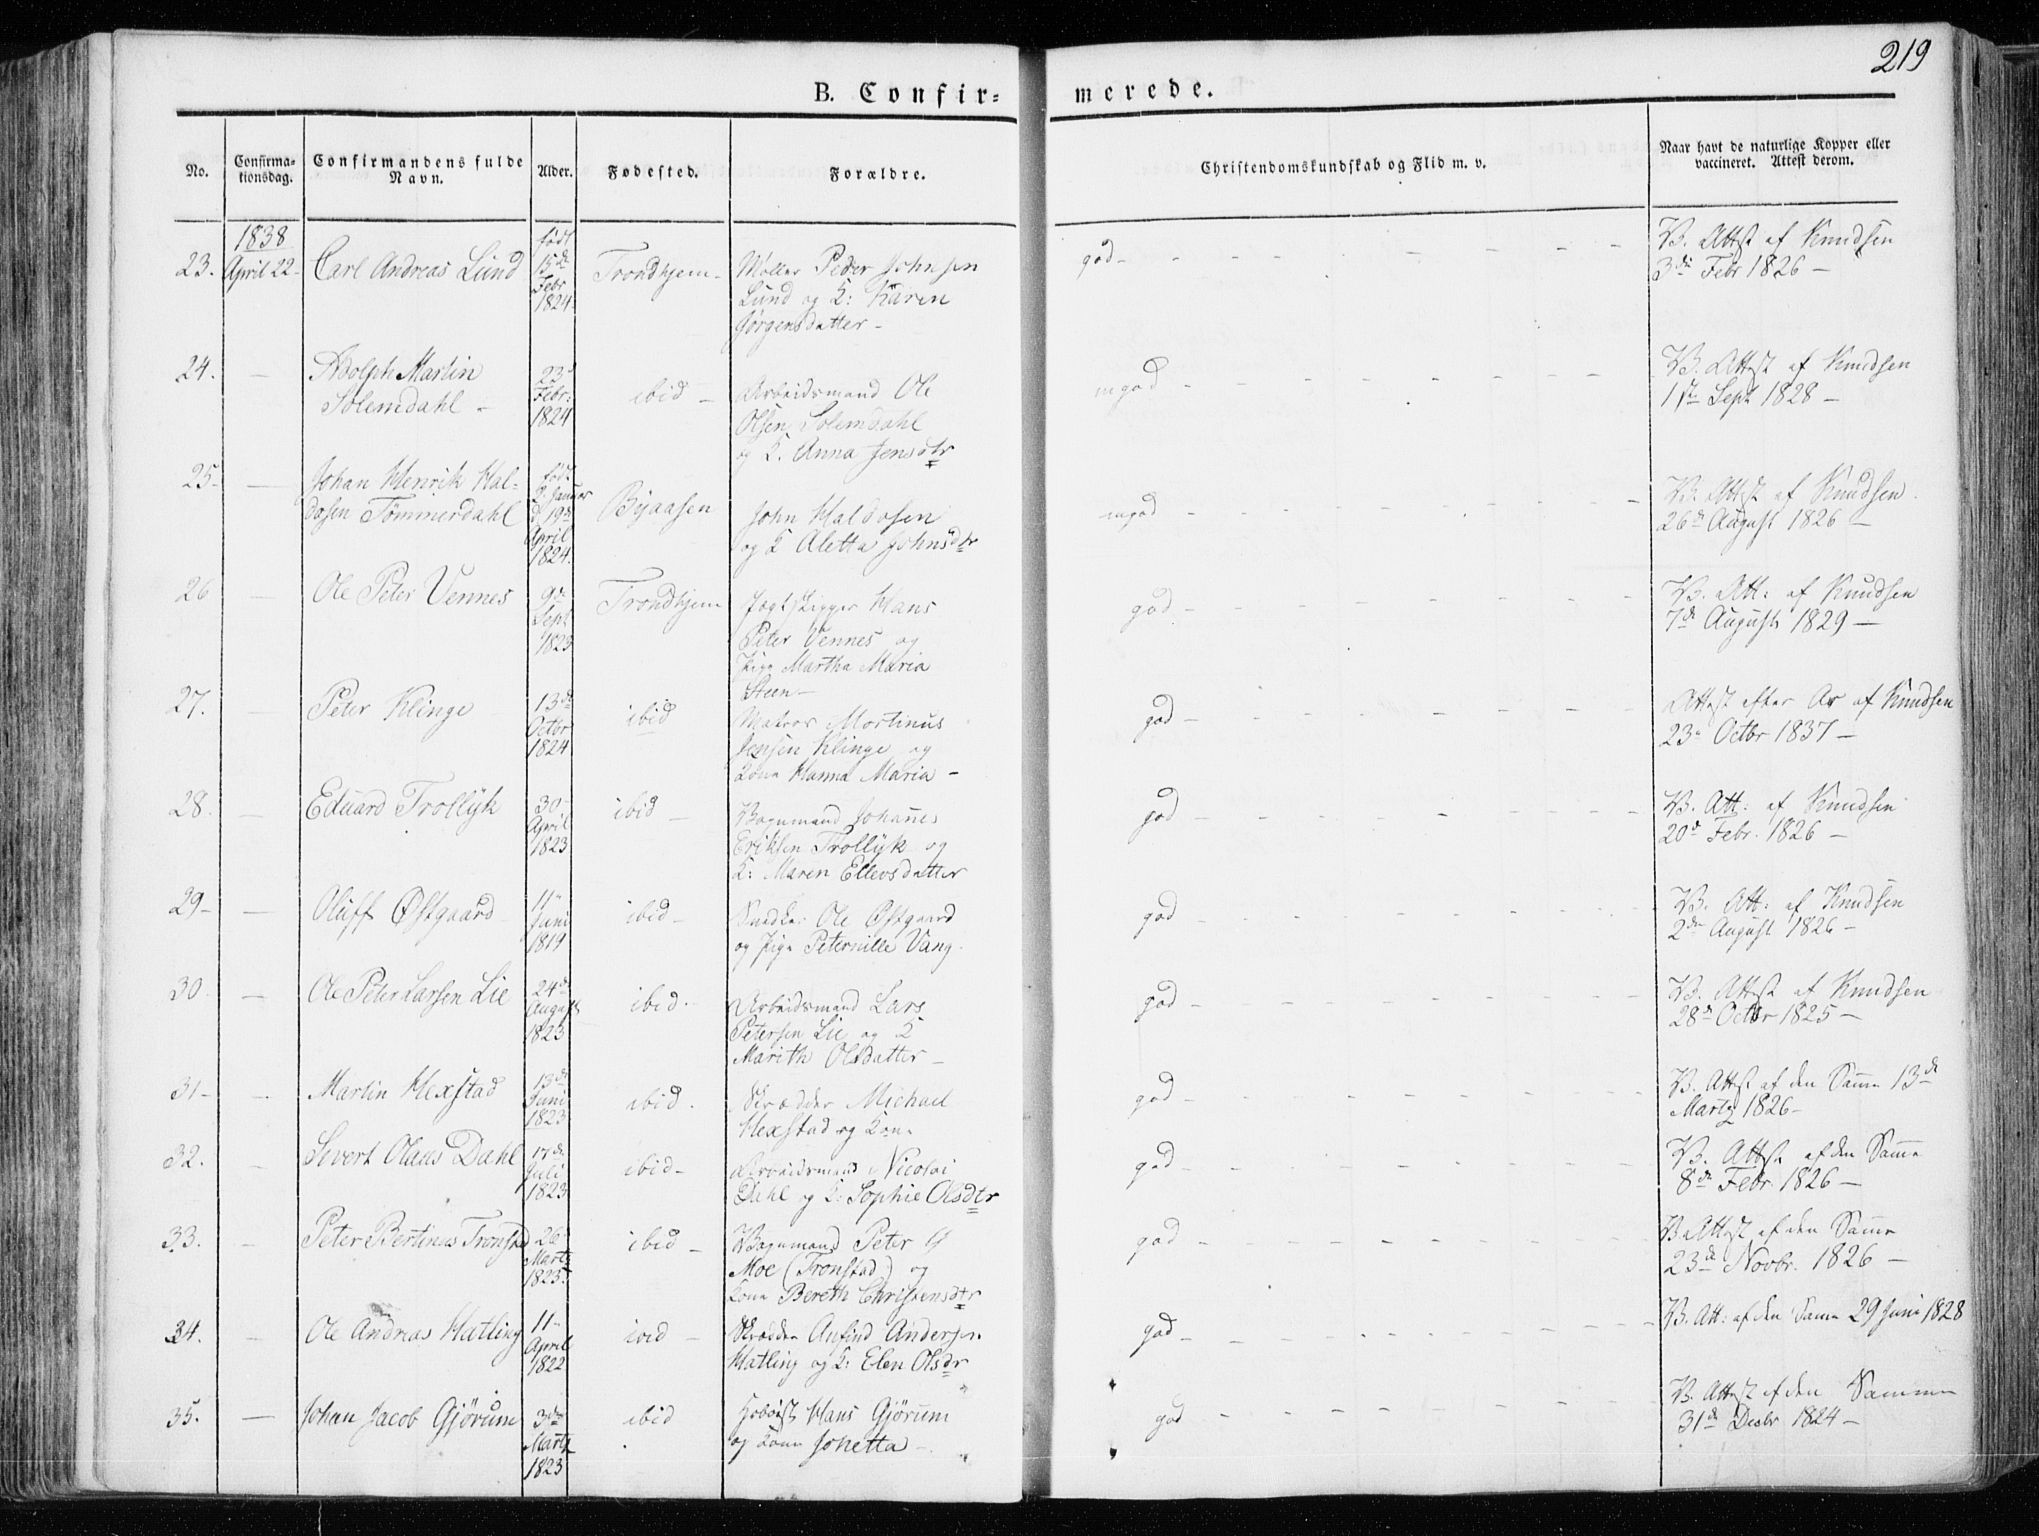 219
B. Confir=
merede.
No.
Confirma-
tionsdag.
Confirmandens fulde
Navn.
Alder.
Fødested.
Forældre.
Christendomskundskab og Flid m. v.
Naar havt de naturlige Kopper eller
vaccineret. Attest derom.
1838
23. April 22- Carl Andreas Lund
født
15de
Febr
1824.
Trondhjem-
Møller Peder Johnsen
Lund og K: Karen
Jørgensdatter-
god-
V. Attst af Knudsen
3de Febr 1826 -
24. -
Adolph Martin
Solemdahl -
23d
Febr:
1824
ibid -
Arbeidsmand Ole
Olsen Solemdahl
og K. Anna Jensdtr
mgod -
V. Attst af Knudsen
1ste Sept 1828 -
25- -
Johan Henrik Hal-
dosen Tømmerdahl
født
2 Januar
d. 19de
April
1824.
Byaasen
John Haldosen
og K Aletta Johnsdtr
mgod -
V. Attst af Knudsen
26de August 1826 -
26 -
Ole Peter Vennes
9de
Sept
1823
Trondhjem
Jægtskipper Hans
Peter Vennes og
Pige Martha Maria
Steen-
god -
V. Att: af Knudsen
7de August 1829 -
27. -
Peter Klinge
13de
Octbr
1824
ibid
Matros Mortinus
Jensen Klinge og
Kone Hanna Maria -
god -
Attst efter Ar af Knudsen
23de Octbr 1837 -
28. -
Eduard Trollyk
30-
April
1823
ibid -
Vognmand Johannes
Eriksen Trollyk og
K: Maren Ellevsdatter
god -
V. Att: af Knudsen
20de Febr. 1826 -
29- -
Oluff Østgaard
11-
Juni
1819
ibid-
Snedker Ole Østgaard
og Pige Peternille Vang.
god -
V. Att: af Knudsen
2den August 1826 -
30 -
Ole Peter Larsen Lie
24de
August
1823
ibid-
Arbeidsmand Lars
Petersen Lie og K
Marith Olsdatter -
god -
V. Attst af Knudsen
28de Octbr 1825 -
31- -
Martin Hexstad
13de
Juni
1823
ibid.
Skrædder Michael
Hexstad og Kone
god -
V. Attst af den Samme 13de
Martz 1826-
32. -
Sivert Olaus Dahl
17de
Juli
1823
ibid-
Arbeidsmand Nicolai
Dahl og K: Sophie Olsdtr
god -
V. Attst af den Samme
8de Febr. 1826 -
33. -
Peter Bertinus Tronstad
26-
Martz
1823.
ibid -
Vognmand Peter
Moe (Tronstad) og
Kone Bereth Christensdtr
god -
V Attst af den Samme
23de Novbr. 1826 -
34. -
Ole Andreas Hatling
11-
April
1822
ibid -
Skrædder Anfind Andersen
Hatling og K: Elen Olsdr
god -
V. Att: af den Samme 29 Juni 1828
35. -
Johan Jacob Gjørum
3de
Martz
1823
ibid
Hoboist Hans Gjørum
og Kone Johetta -
god -
V. Attst af den Sammen
31de Decbr 1824 -